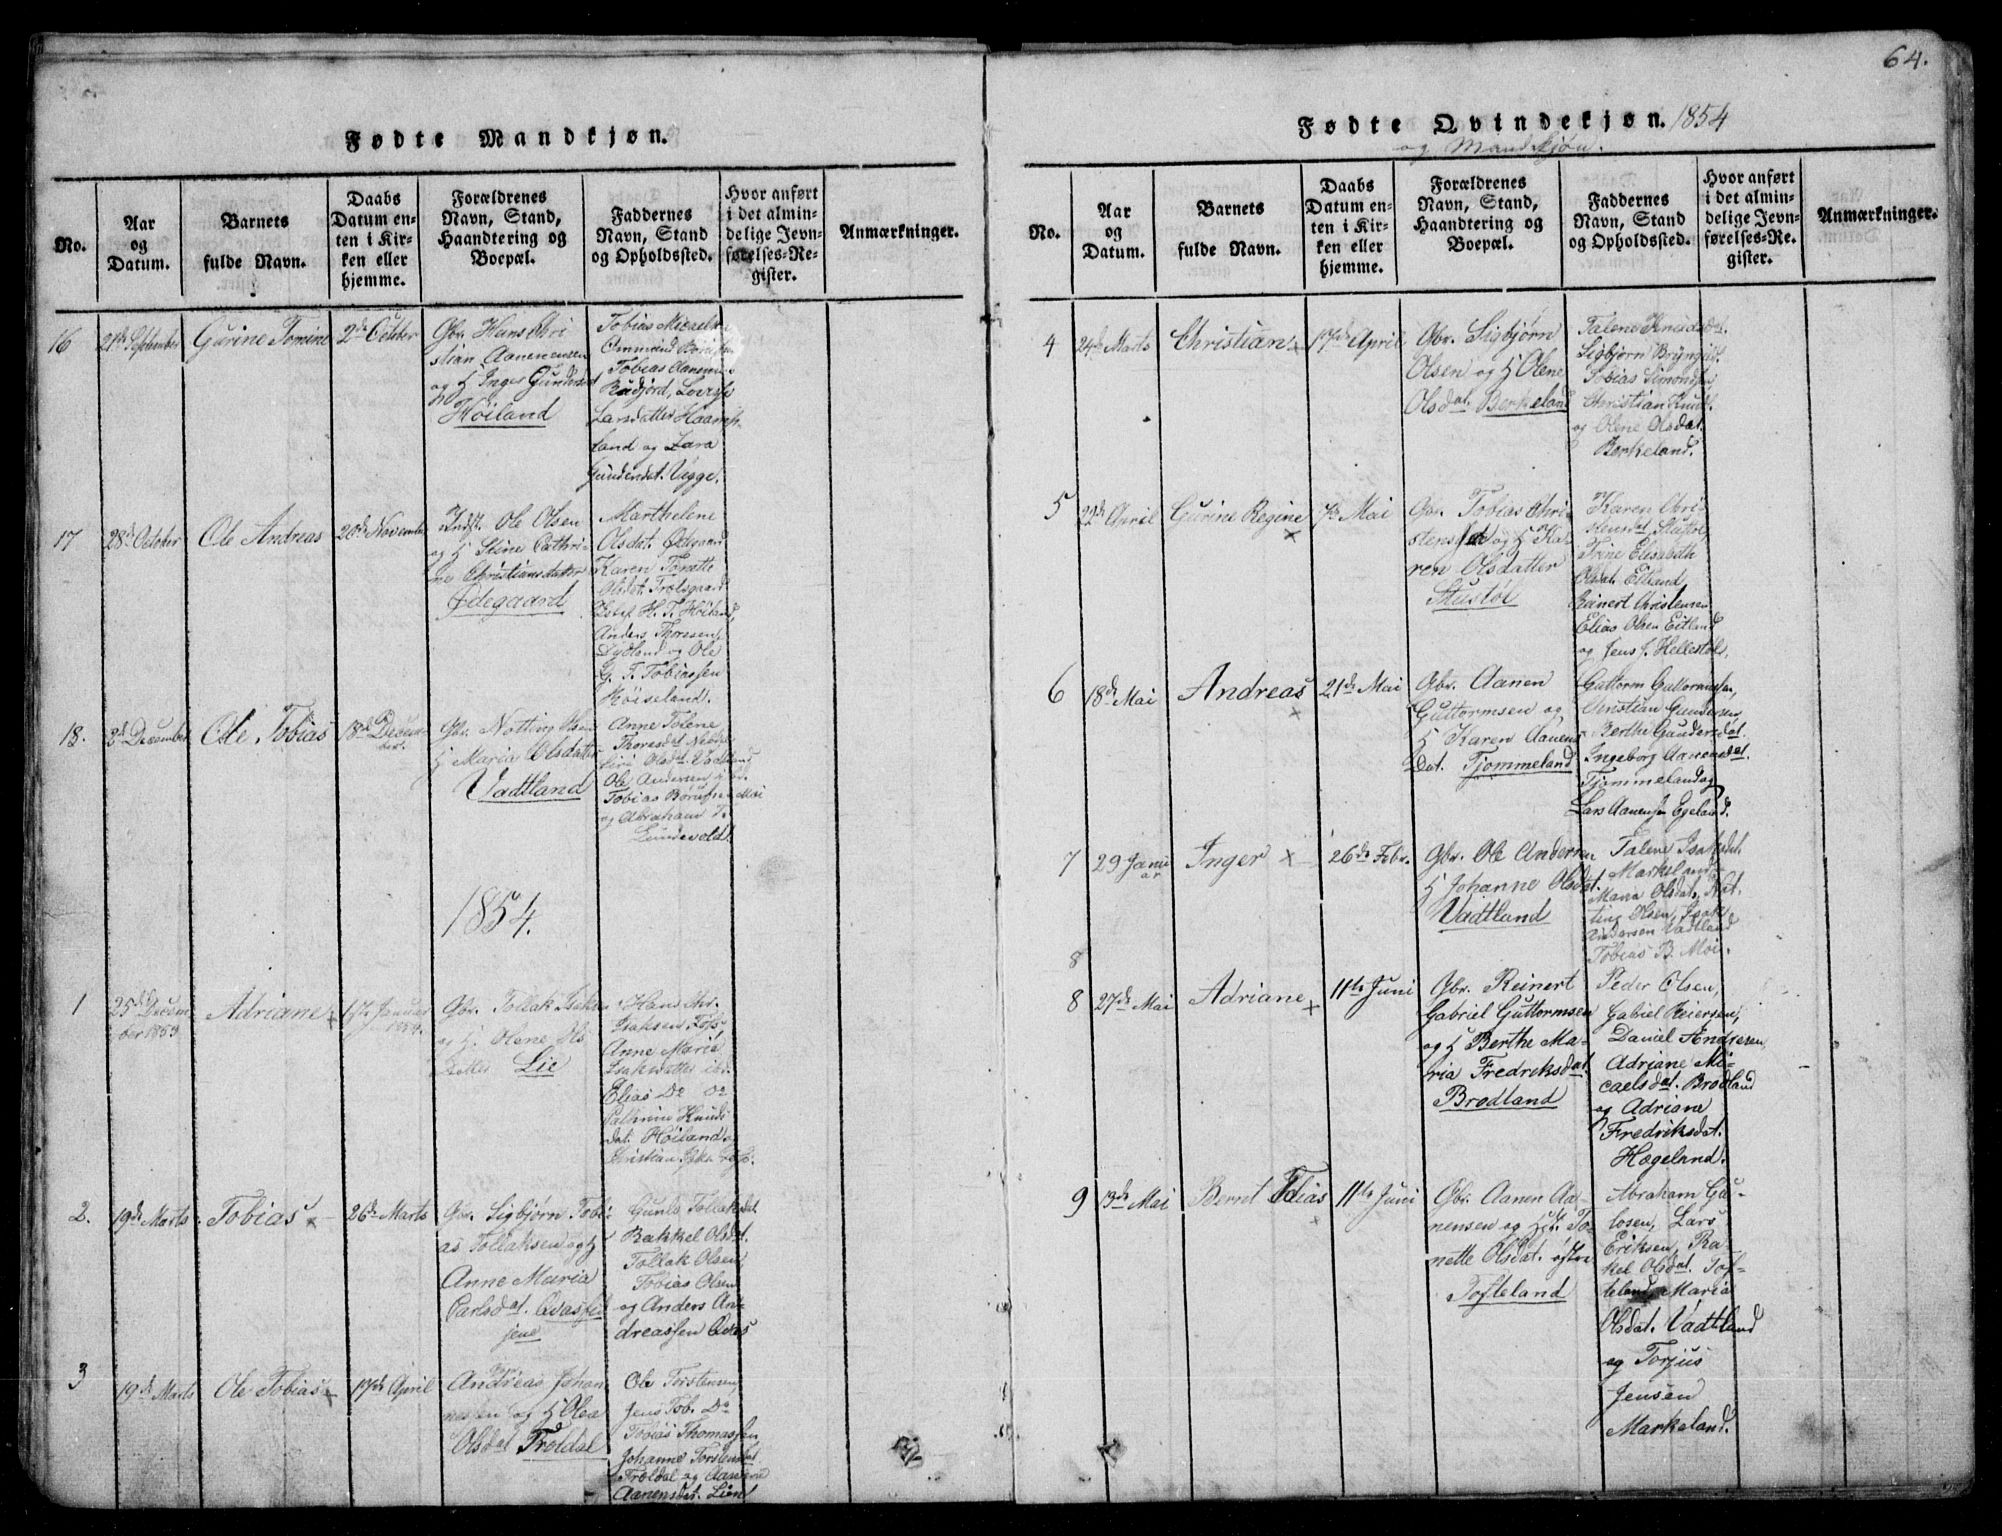 Fødte Mandkjøn.
No.
Aar
og
Datum.
Barnets
fulde Navn.
Daabs
Datum en-
ten i Kir-
ken eller
hjemme.
Forældrenes
Navn, Stand,
Haandtering og
Boepæl.
Faddernes
Navn, Stand
og Opholdssted.
Hvor anført
i det almin-
delige Jevn-
førelses-Re-
gister.
Anmærkninger.
16
21de September
Gurine Tomine
2de October
Gbr. Hans Chri
stian Aanenensen
og H Inger Gundersdt
Høiland
Tobias Micaels
Ommund
Tobias Aanen
Rudjord, Lovise
Larsdatter Haam
land og Zara
Gundersdt. Ugge.
17
28de October
Ole Andreas
20de November
Indst. Ole Olsen
og H Stine Cathri-
ne Christiansdatter
Ødegaard
Marthelene
Olsdat. Ødegaard
Karen Tonette
Olsdat. Trolsgaard
H. T. Høiland,
Anders Thorsen,
Dydland og Ole
G. T. Tobiassen
Høiseland.
18.
2de December
Ole Tobias
18de Decem-
ber.
Gbr. Notting Olsen
H Maria Olsdatter
Vadtland
Anne Tolene
Thoresdat
Siri Olsdt. Vadtland
Ole Andersen ibd.
Tobias Børufsen Moi
og Abraham T.
Lundevold.
1854.
1
25de Decem
ber 1853
Adriane
1ste Januar
1854.
Gbr. Tollak Isaksen
og H. Olene Ols
datter Lie
Hans Chr.
Isaksen Foss,
Anne Marie
Isaksdatter ibd.
Elias Do Do
Cathrine Knuds
dat. Høiland
Christian
2.
19de Marts
Tobias
26de Marts
Gbr. Sigbjørn Tobi-
as Tollaksen og H
Anne Maria
Carlsdat. Qvasfid
jene
Gunlo Tollaksdat
Rakkel Olsdat.
Tollak Olsen,
Tobias Olsen
og Anders An-
dreassen Qvas
3
19de Marts
Ole Tobias
17de April
Gbr.
Andreas Johan
nessen og H Olea
Olsdat Froldal
Ole Torstensen,
Jens Tob. Do
Tobias Thomassen,
Johanne Torstensdat
Froldal og Aasene
Aanensdat. Lient
64.
Fødte Qvindekjøn. 1854
og Mandkjøn.
No.
Aar
og
Datum.
Barnets
fulde Navn.
Daabs
Datum en-
ten i Kir-
ken eller
hjemme.
Forældrenes
Navn, Stand,
Haandtering og
Boepæl.
Faddernes
Navn, Stand
og Opholdssted.
Hvor anført
i det almin-
delige Jevn-
førelses-Re-
gister.
Anmærkninger.
4
24de Marts
Christian
17de April
Gbr. Sigbjørn
Olsen og H Olene
Olsdat. Berkeland
Talene Knudsdt.
Sigbjørn Bryngels.
Tobias Simonds
Christian Knuds.
og Olene Olsdat.
Berkeland.
5
22de April
Gurine Regine
7de Mai
Gbr. Tobias Chri-
stensen og H Ka-
ren Olsdatter
Stustøl
Karen Chri-
stensdat, Stustøl,
Trine Elisabeth
Olsdat. Eitland,
Reinert Christensen
Elias Olsen Eitland
og Jens J. Hellestøl.
6
18de Mai
Andreas
21de Mai
Gbr. Aanen
Guttormsen og
H Karen Aanens
Dat. Tjommeland
Guttorm Guttormsen,
Christian Gundersen
Berthe Gundersdat.
Ingeborg Aanensdat.
Tjommeland og
Lars Aanensen Egeland.
7
29 Janu
ar
Inger
26de Febr.
Gbr. Ole Andersen
H Johanne Olsdat.
Vadtland
Talene Isaksdat.
Markeland
Maria Olsdat, Not
ting Olsen, Isak
Andersen Vadtland
Tobias B. Moi.
8
8
27de Mai
Adriane
11te Juni
Gbr. Reinert
Gabriel Guttormsen
og H Berthe Ma-
ria Fredriksdat.
Brodland
Peder Olsen,
Gabriel Reiersen,
Daniel Andresen,
Adriane Mi-
caelsdat. Brodland
og Adriane
Fredriksdat.
Hægeland.
9
13de Mai
Bernt Tobias
11te Juni
Gbr. Aanen Aa-
nensen og H To-
nette Olsdat. øftre
Tofteland
Abraham Ga-
losen, Lars
Eriksen, Ra-
kel Olsdat. Tof-
teland, Maria
Olsdat. Vadtland
og Torjus
Jensen
Markeland.